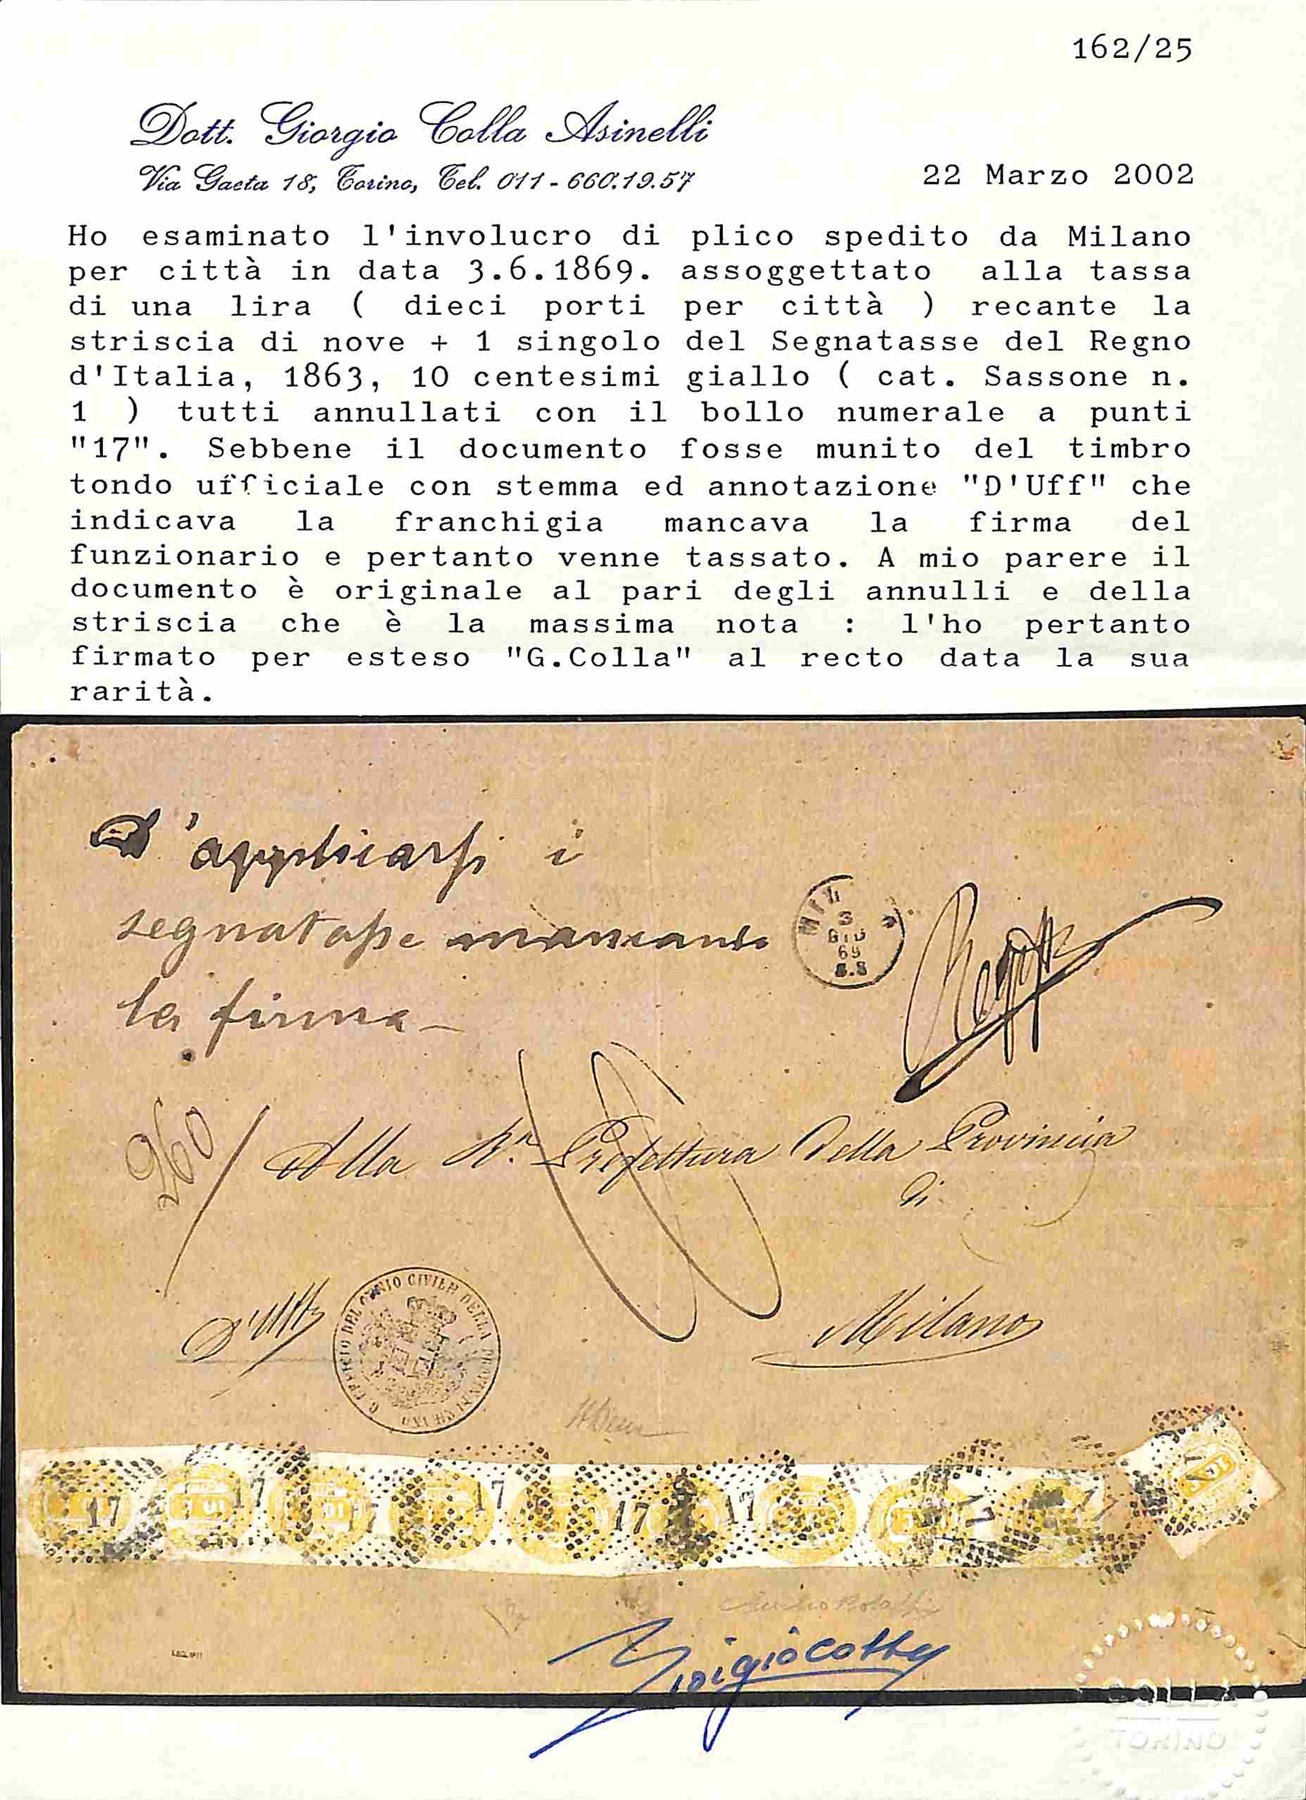 162/25
Dott. Giorgio Colla Asinelli
Via Gaeta 18, Torino, Tel. 011 - 660.19.57
22 Marzo 2002
Ho esaminato l'involucro di plico spedito da Milano
per città in data 3.6.1869. assoggettato alla tassa
di una lira ( dieci porti per città ) recante la
striscia di nove + 1 singolo del Segnatasse del Regno
d'Italia, 1863, 10 centesimi giallo ( cat. Sassone n.
1 ) tutti annullati con il bollo numerale a punti
"17". Sebbene il documento fosse munito del timbro
tondo ufficiale con stemma ed annotazione "D'Uff" che
indicava la franchigia mancava la firma del
funzionario e pertanto venne tassato. A mio parere il
documento è originale al pari degli annulli e della
striscia che è la massima nota : l'ho pertanto
firmato per esteso "G.Colla" al recto data la sua
rarità.
D'applicarsi i
segnatasse mancando
la firma
MIL
3
GIU
69
8.S
260
Alla R. Prefettura della Provincia
di
D'Uff
Milano
UFFICIO DEL GENIO CIVILE DELLA
17 17 17 17 17 17
COLLA
TORINO